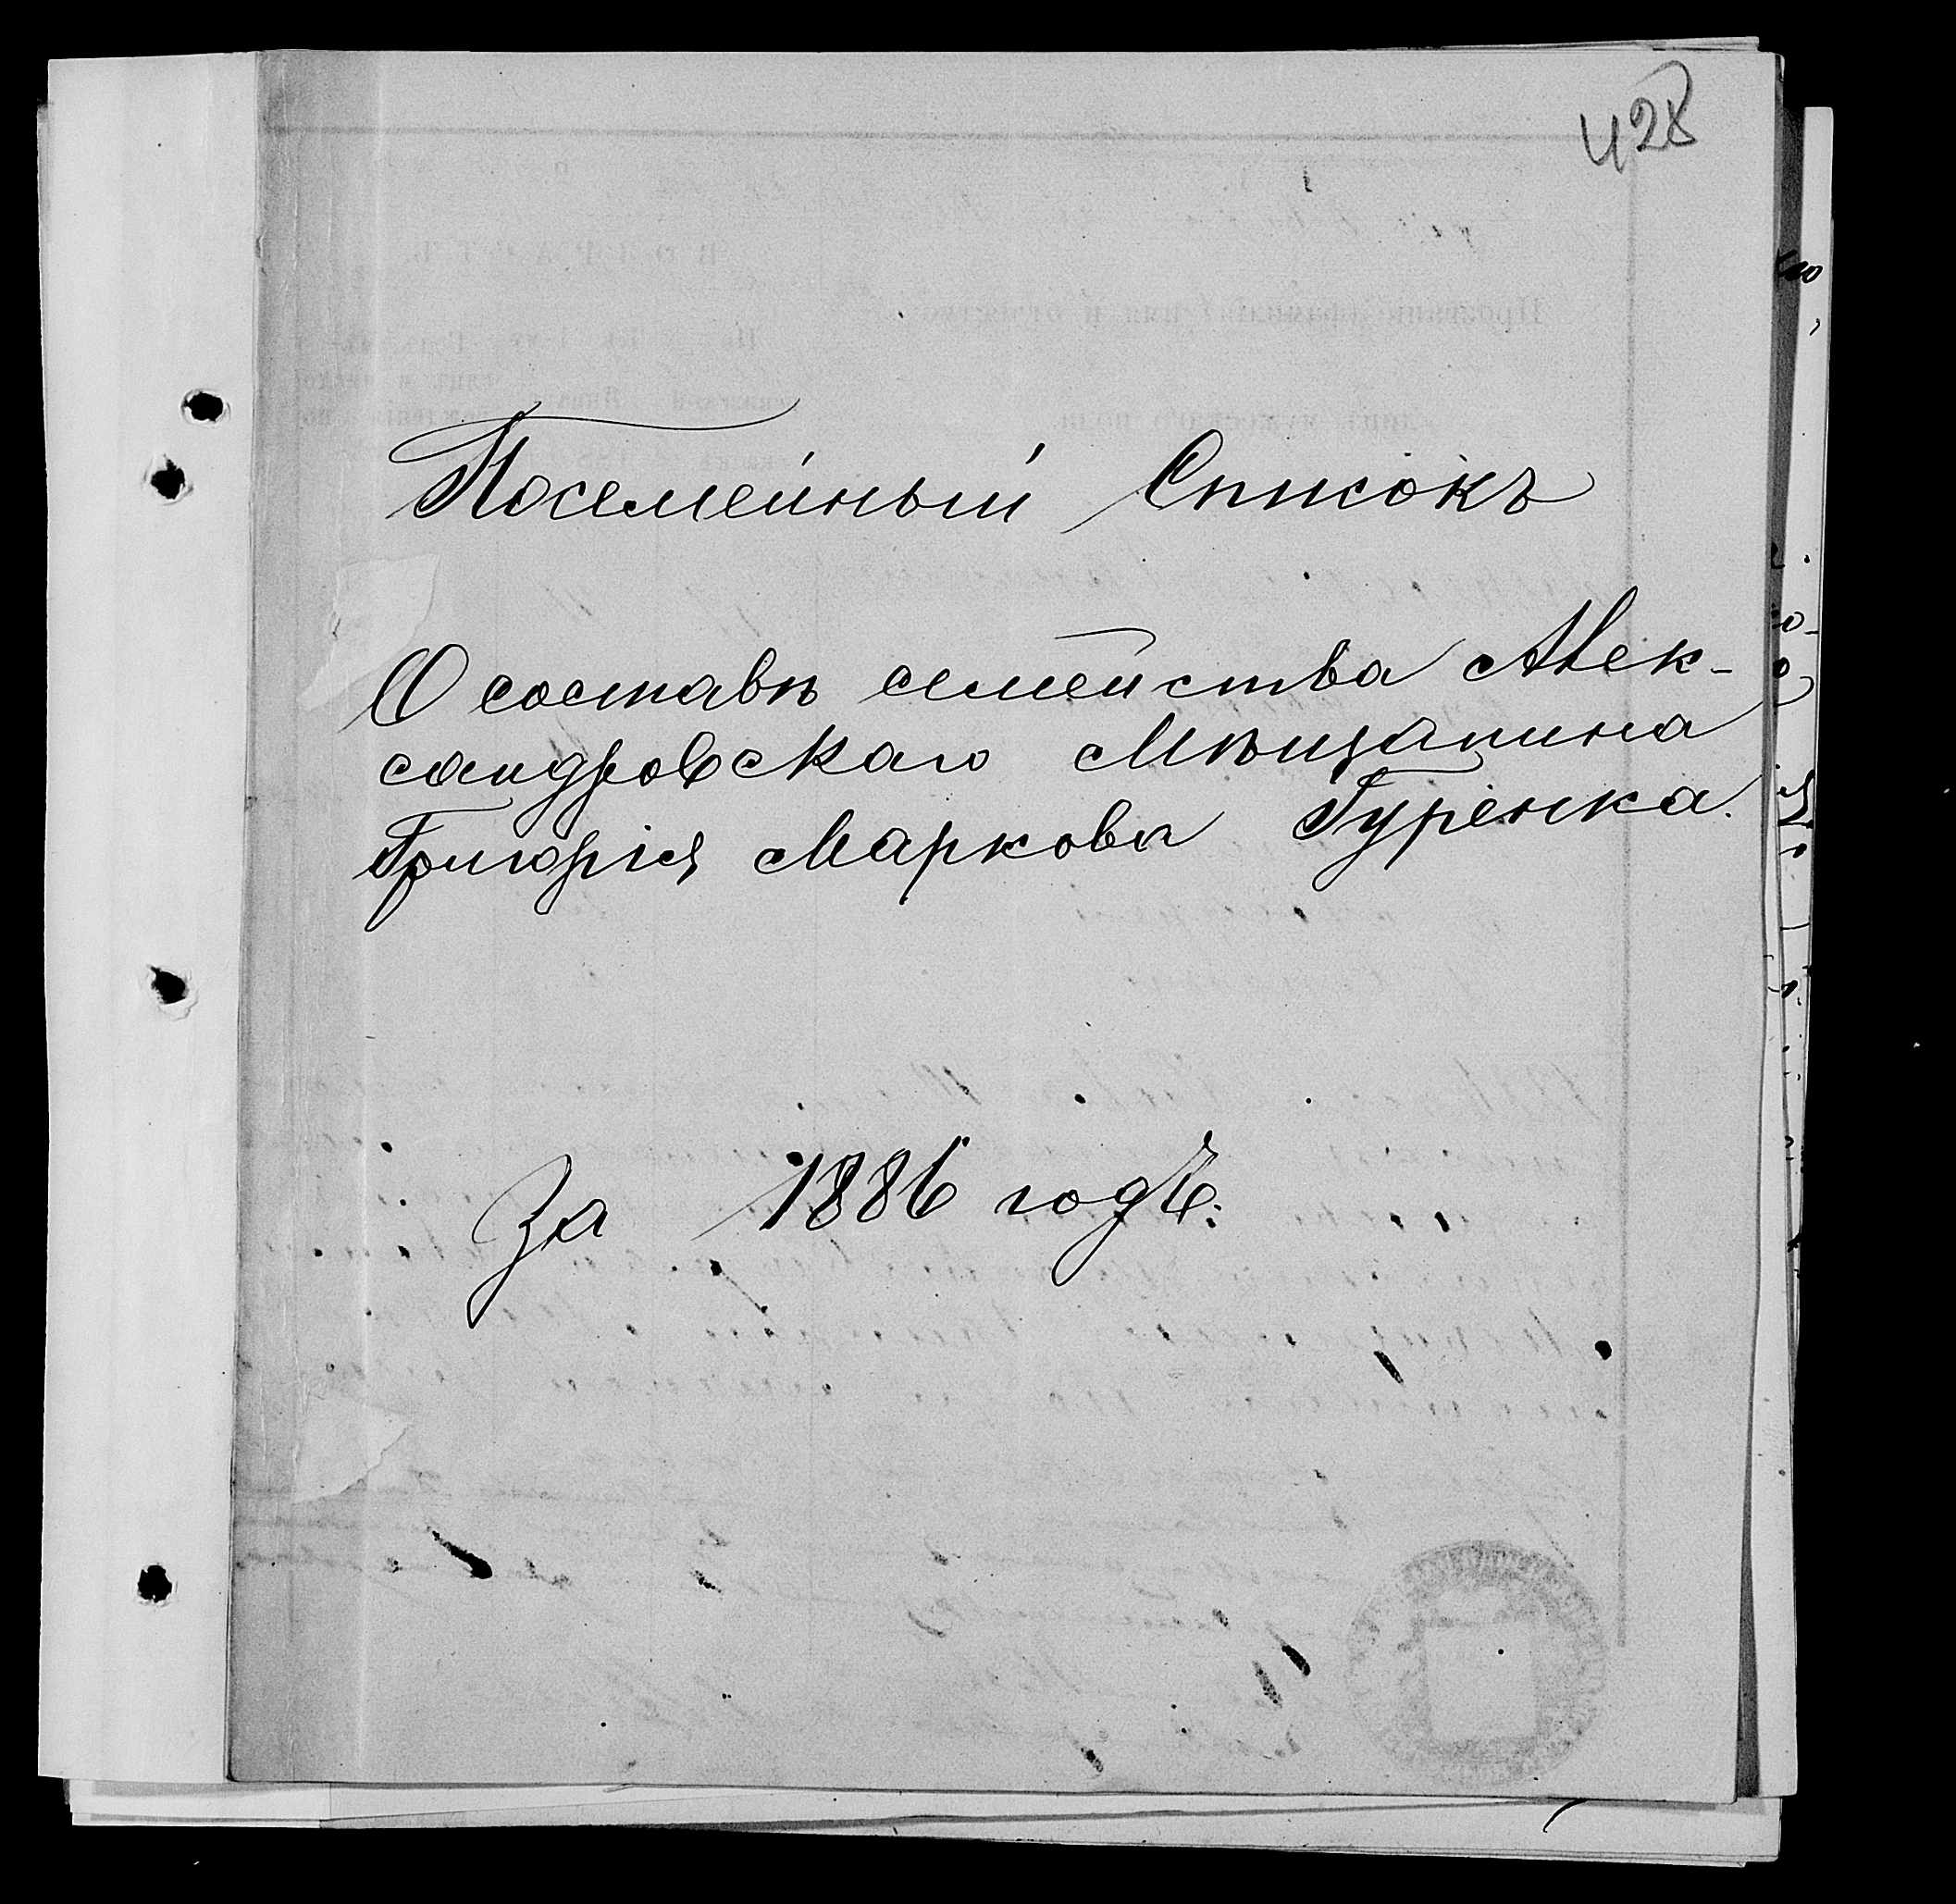 428
Посемейный Списокъ
О составѣ семейства Алек-
сандровскаго Мѣщанина
Григорія Маркова Гуренка.
За 1886 годъ.